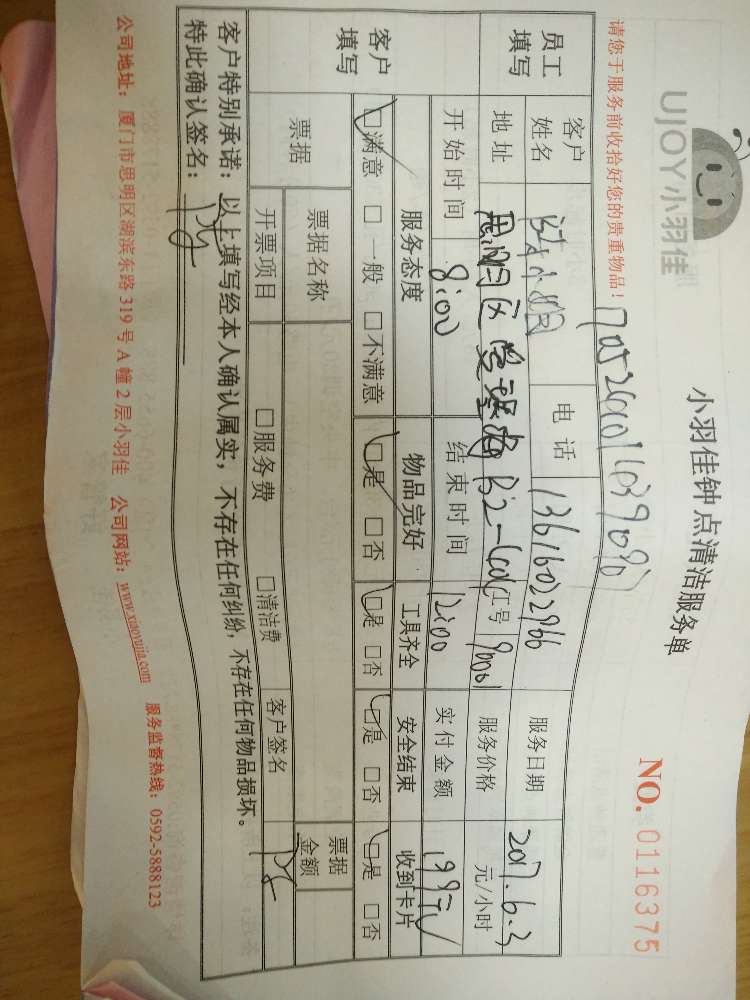 UJOY小羽佳
小羽佳钟点清洁服务单
NO. 0116375
请您于服务前收拾好您的贵重物品！
员工填写
客户姓名
电话 13616022966
服务日期 2017.6.3
地址 思明区
工号 90001
服务价格 元/小时
开始时间 8:00
结束时间 12:00
实付金额 199元
客户填写
服务态度 物品完好 工具齐全 安全结束 收到卡片
☑满意 □一般 □不满意 ☑是 □否 ☑是 □否 ☑是 □否 ☑是 □否
票据
票据名称
票据金额
开票项目 □服务费 □清洁费 客户签名
客户特别承诺：以上填写经本人确认属实，不存在任何纠纷，不存在任何物品损坏。
特此确认签名：
公司地址：厦门市思明区湖滨东路 319 号 A 幢 2 层小羽佳 公司网站：www.xiaoyujia.com 服务监督热线：0592-5888123